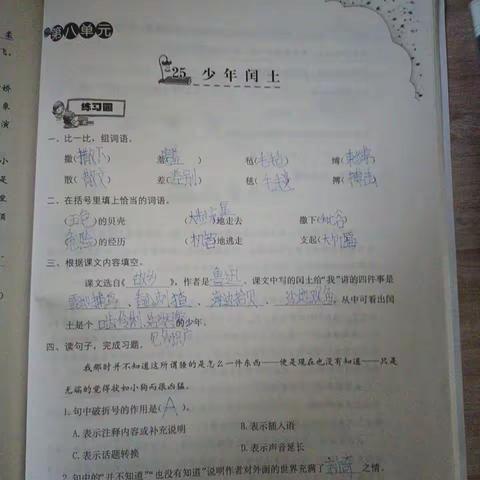 第八单元
25 少年闰土
练习圃
一、比一比，组词语。
撒(撒下) 羞(羞) 毡(毡帽) 博(
散(散文) 差(差别) 毯(毛毯) 搏(搏击)
二、在括号里填上恰当的词语。
(五色)的贝壳 ( )地走去 撒下(秕谷)
(危险)的经历 ( )地逃走 支起(大竹匾)
三、根据课文内容填空。
课文选自《故乡》，作者是鲁迅、课文中写的闰土给“我”讲的四件事是
雪地捕鸟、看瓜刺猹、海边拾贝、沙地观鱼，从中可看出闰
土是个 的少年。
见多识广
四、读句子，完成习题。
我那时并不知道这所谓猹的是怎么一件东西——便是现在也没有知道——只是
无端的觉得状如小狗而很凶猛。
1.句中破折号的作用是(A)。
A.表示注释内容或补充说明 B.表示插入语
C.表示话题转换 D.表示声音延长
2.句中的“并不知道”“也没有知道”说明作者对外面的世界充满了好奇之情。